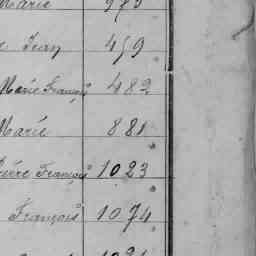 Marie 985
Jean 459
Marie François 482
Marie 881
François 1023
François 1074